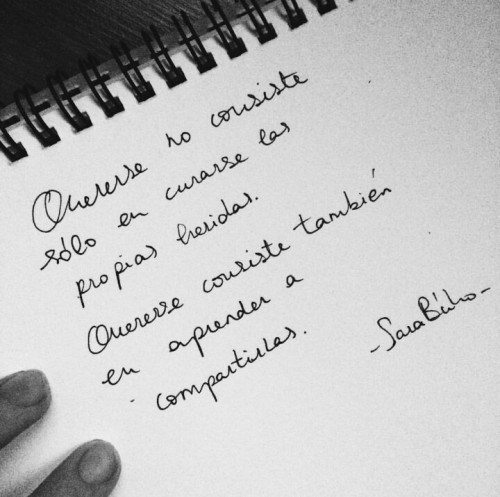 Quererse no consiste
sólo en curarse las
propias heridas.
Quererse consiste también
en aprender a
compartirlas.
-Sara Búho-